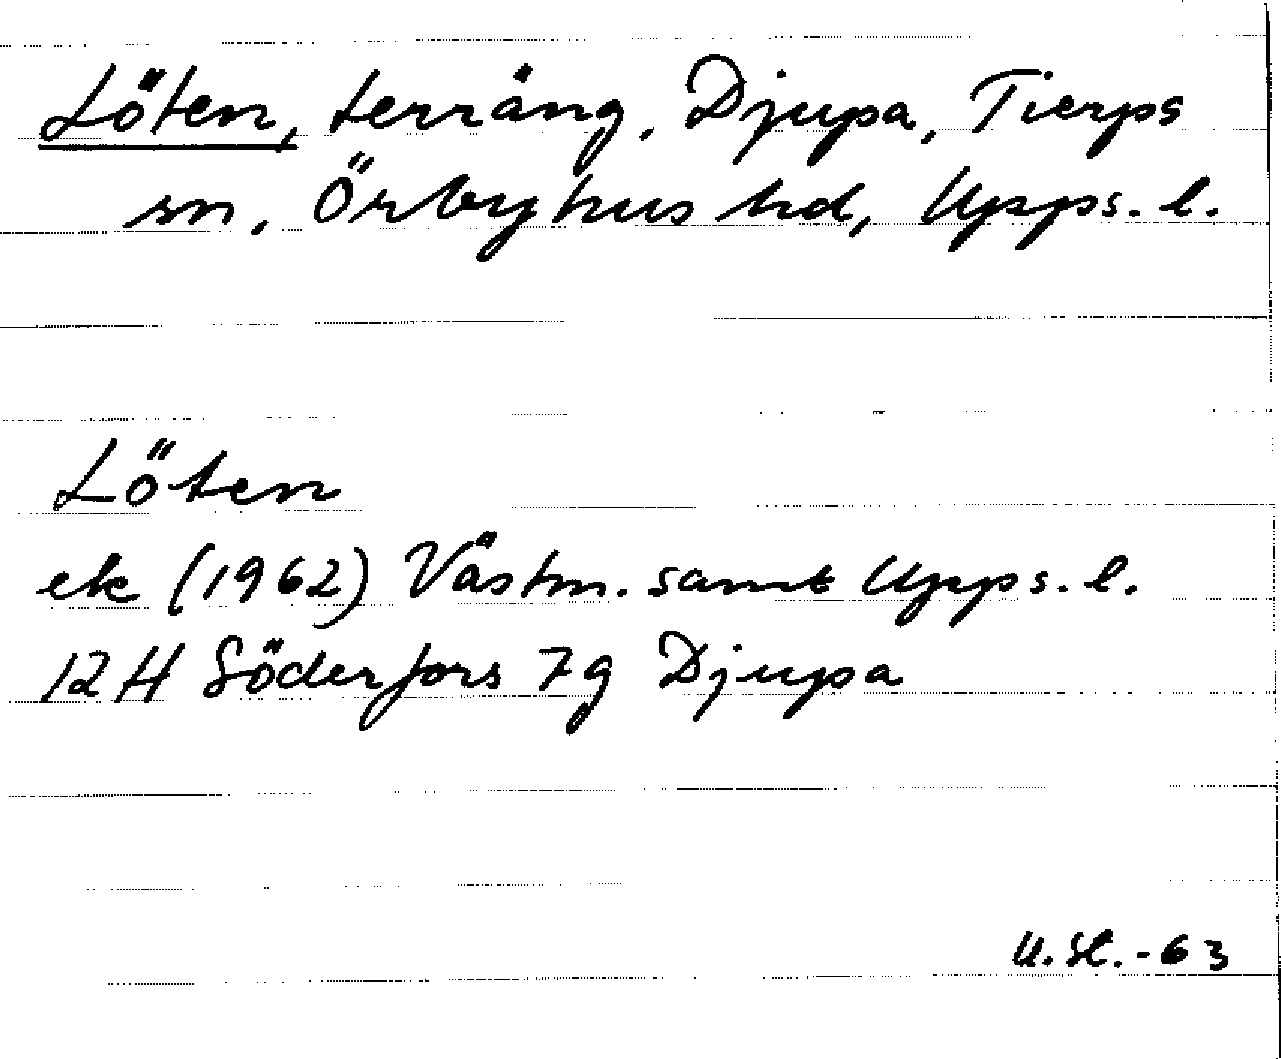 Löten, terräng, Djupa, Tierps
sn, Örbyhus hd, Upps. l.
Löten
ek (1962) Västm. samt Upps. l.
12 H Söderfors 7g Djupa
U. H. -63